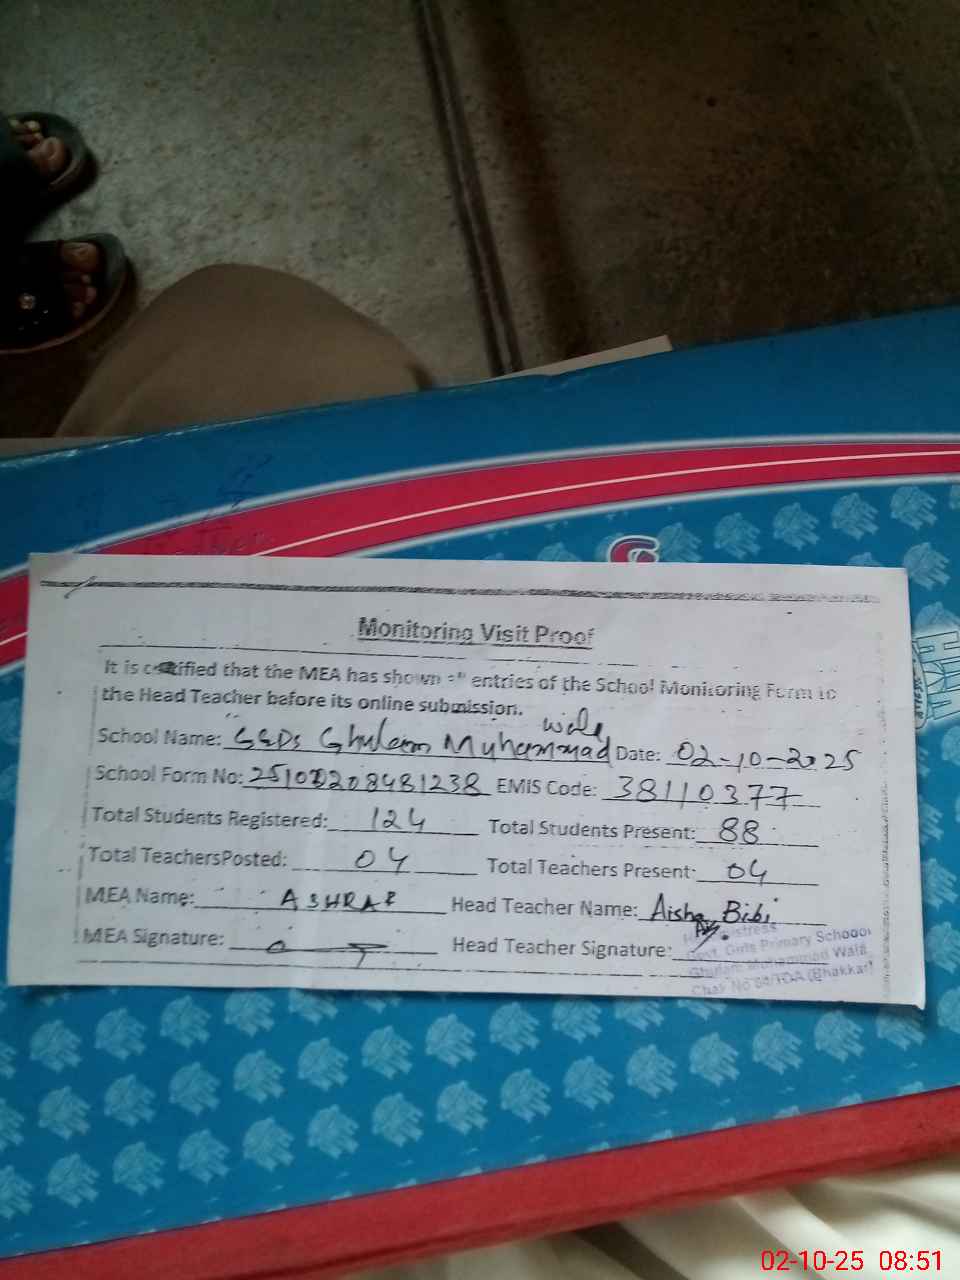 Monitoring Visit Proof
It is certified that the MEA has shown all entries of the School Monitoring Form to
the Head Teacher before its online submission.
School Name: GGPS Ghulam Muhammad wala Date: 02-10-2025
School Form No: EMIS Code: 38110377
Total Students Registered: 124 Total Students Present: 88
Total TeachersPosted: 04 Total Teachers Present: 04
MEA Name: ASHRAF Head Teacher Name: Aisha Bibi
MEA Signature: Head Teacher Signature:
Govt. Girls Primary School
Ghulam Muhammad Wala
Chak No 64/TDA (Bhakkar)
02-10-25 08:51